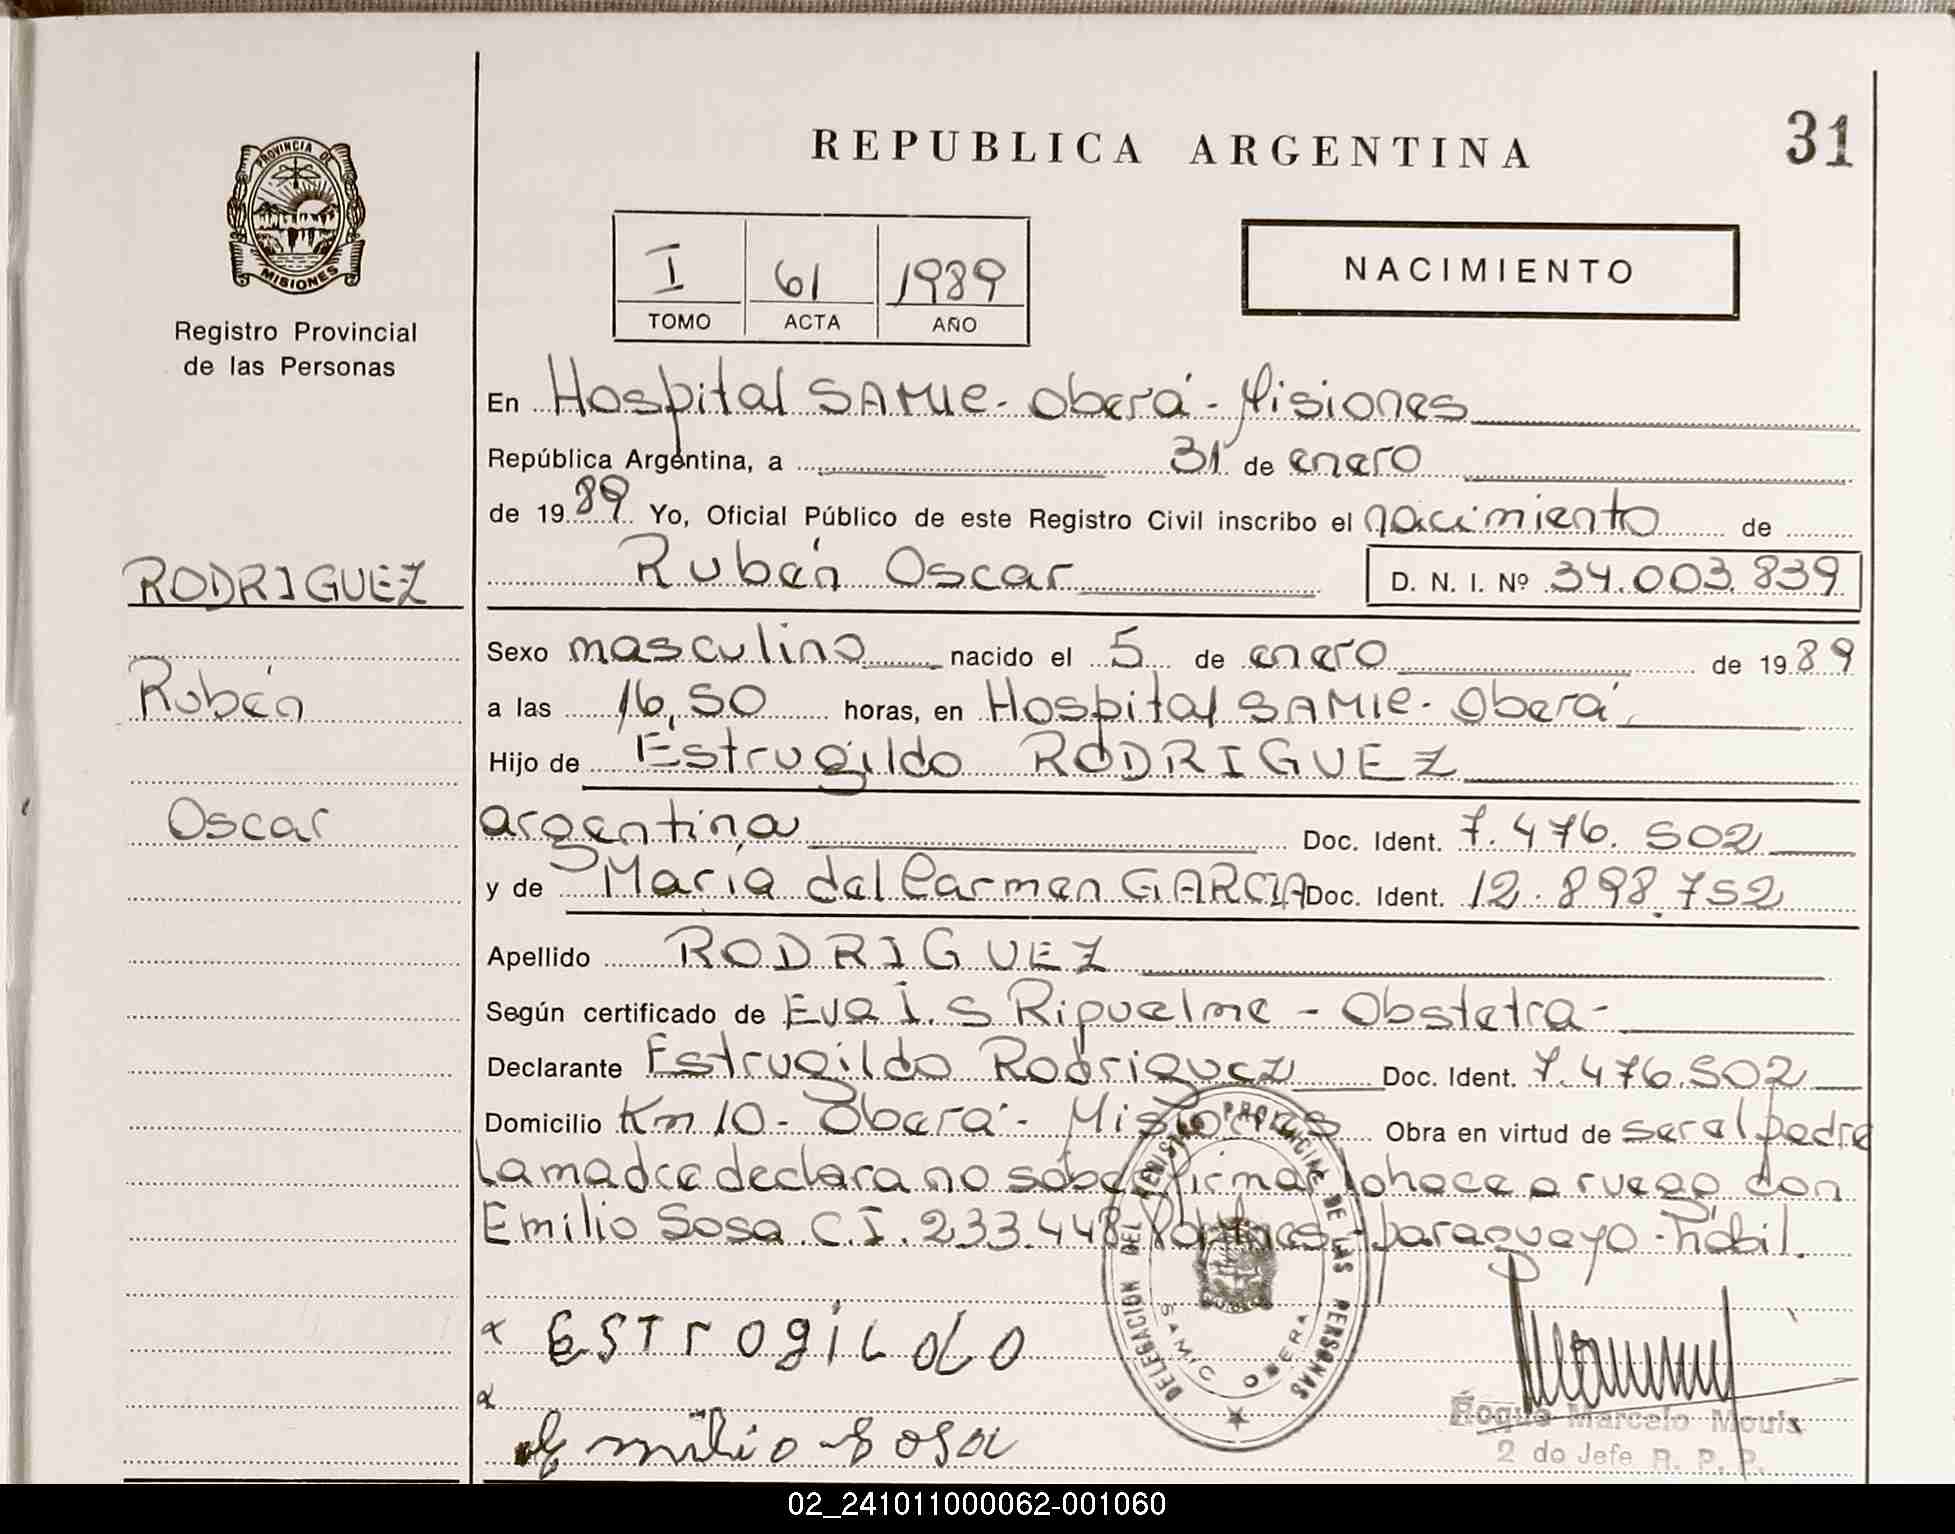 REPUBLICA ARGENTINA
31
PROVINCIA DE
MISIONES
Registro Provincial
de las Personas
I 61 1989
TOMO ACTA AÑO
NACIMIENTO
En Hospital SAMIC - Oberá - Misiones
República Argentina, a 31 de enero
de 1989 Yo, Oficial Público de este Registro Civil inscribo el nacimiento de
Rubén Oscar D. N. I. Nº 34.003.839
RODRIGUEZ
Rubén
Oscar
Sexo masculino nacido el 5 de enero de 1989
a las 16,50 horas, en Hospital SAMIC - Oberá
Hijo de Estrugildo RODRIGUEZ
argentina Doc. Ident. 7.476.502
y de María del Carmen GARCIA Doc. Ident. 12.898.752
Apellido RODRIGUEZ
Según certificado de Eva I. S Riquelme - Obstetra -
Declarante Estrugildo Rodriguez Doc. Ident. 7.476.502
Domicilio Km 10 - Oberá - Misiones Obra en virtud de ser el padre
La madre declara no saber firmar lo hace a ruego don
Emilio Sosa C.I. 233.448 Pol. Mnes - paraguayo - hábil.
ESTROGILDO
Emilio Sosa
DELEGACIÓN DEL REGISTRO PROVINCIAL DE LAS PERSONAS
SAMIC OBERA
Roque Marcelo Mouls
2 do Jefe R. P. P.
02_241011000062-001060